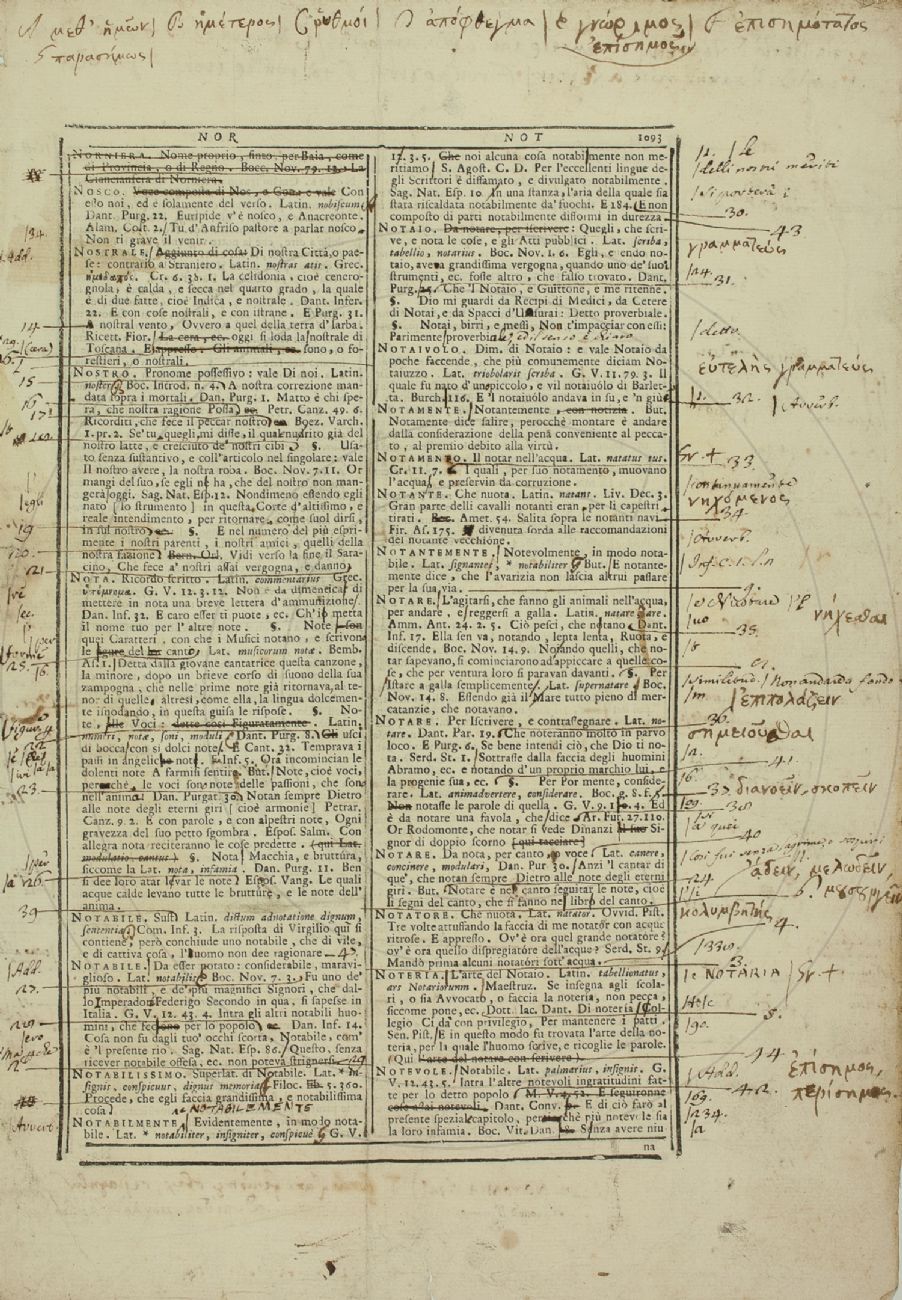 A μεθ' ἡμῶν| B ἡμέτερος| C ῥυθμοί | D ἀπόφθεγμα | E γνώριμος | F ἐπισημότατος
ἐπίσημος
G παρασήμως|
NOR
NOT 1093
NORNIERA. Nome proprio, finto, per Baia, come
di Provincia, o di Regno. Bocc. Nov. 79. 12. La
Ciancianfera di Norniera.
NOSCO. Voce composta di Nos, e Con: e vale Con
esso noi, ed è solamente del verso. Latin. nobiscum
Dant. Purg. 22. Euripide v'è nosco, e Anacreonte.
Alam. Colt. 2. Tu d'Anfriso pastore a parlar nosco
Non ti grave il venir.
NOSTRALE. Aggiunto di cosa: Di nostra Città, o pae-
se: contrario a Straniero. Latin. nostras atis. Grec.
Cr. 6. 3h. 1. La celidonia, cioè cenero-
gnola, è calda, e secca nel quarto grado, la quale
è di due fatte, cioè Indica, e nostrale. Dant. Infer.
22. E con cose nostrali, e con istrane. E Purg. 31.
A nostral vento, Ovvero a quel della terra d'Iarba.
Ricett. Fior. La cera, ec. oggi si loda la nostrale di
Toscana. E appresso. Gli animali, ec. sono, o fo-
restieri, o nostrali.
NOSTRO. Pronome possessivo: vale Di noi. Latin.
noster Bocc. Introd. n. 4. A nostra correzione man-
data sopra i mortali. Dan. Purg. 1. Matto è chi spe-
ra, che nostra ragione Possa ec. Petr. Canz. 49. 6.
Ricorditi, che fece il peccar nostro ec. Boez. Varch.
1. pr. 2. Se' tu quegli mi disse, il qual nudrito già del
nostro latte, e cresciuto de' nostri cibi §. Usa-
to senza sustantivo, e coll'articolo nel singolare: vale
Il nostro avere, la nostra roba. Boc. Nov. 7. 11. Or
mangi del suo, se egli ne ha, che del nostro non man-
gerà oggi. Sag. Nat. Esp. 12. Nondimeno essendo egli
nato [lo strumento] in questa Corte d'altissimo, e
reale intendimento, per ritornare, come suol dirsi,
in sul nostro ec. §. E nel numero del più espri-
mente i nostri parenti, i nostri amici, quelli della
nostra fazione Bern. Orl. Vidi verso la fine il Sara-
cino, Che fece a' nostri assai vergogna, e danno
NOTA. Ricordo scritto. Latin. commentarius Grec.
ὑπόμνημα. G. V. 12. 3. 12. Non è da dimenticar di
mettere in nota una breve lettera d'ammunizione.
Dan. Inf. 32. E caro esser ti puote, ec. Ch'io metta
il nome tuo per l'altre note. §. Note son
que' Caratteri, con che i Musici notano, e scrivono
le figure del lor canto. Lat. musicorum notæ. Bemb.
As. 1. Detta dalla giovane cantatrice questa canzone,
la minore, dopo un brieve corso di suono della sua
zampogna, che nelle prime note già ritornava, al te-
no: di quelle, altresì, come ella, la lingua dolcemen-
te isnodando, in questa guisa le rispose. §. No-
te, alle Voci: dette così Figuratamente. Latin.
numeri, notæ, soni, moduli Dant. Purg. 8. Gli uscì
di bocca, con si dolci note. E Cant. 32. Temprava i
passi in angeliche note. Inf. 5. Ora incomincian le
dolenti note A farmisi sentire. But. Note, cioè voci,
perocchè, le voci son note delle passioni, che sono
nell'animo Dan. Purgat. 30. Notan sempre Dietro
alle note degli eterni giri [cioè armonie] Petrar.
Canz. 9. 2. E con parole, e con alpestri note, Ogni
gravezza del suo petto sgombra. Espos. Salm. Con
allegra nota reciteranno le cose predette. (qui Lat.
modulatio, cantus) §. Nota Macchia, e bruttura,
siccome la Lat. nota, infamia. Dan. Purg. 11. Ben
si dee loro atar lavar le note Espos. Vang. Le quali
acque calde levano tutte le brutture, e le note dell'
anima.
NOTABILE. Sust. Latin. dictum adnotatione dignum,
sententia. Com. Inf. 3. La risposta di Virgilio qui si
contiene, però conchiude uno notabile, che di vile,
e di cattiva cosa, l'uomo non dee ragionare
NOTABILE. Da esser notato: considerabile, maravi-
glioso. Lat. notabilis Boc. Nov. 7. 3. Fu uno de'
piu notabili, e de' più magnifici Signori, che dal-
lo Imperador Federigo Secondo in qua, si sapesse in
Italia. G. V. 12. 43. 4. Intra gli altri notabili huo-
mini, che feciono per lo popolo ec. Dan. Inf. 14.
Cosa non fu dagli tuo' occhi scorta, Notabile, com'
è 'l presente rio. Sag. Nat. Esp. 86. Questo, senza
ricever notabile offesa, ec. non poteva strignersi.
NOTABILISSIMO. Superlat. di Notabile. Lat. * in-
signis, conspicuus, dignus memoria Filoc. lib. 5. 360.
Procede, che egli faccia grandissima, e notabilissima
cosa
e NOTABILEMENTE
NOTABILMENTE. Evidentemente, in modo nota-
bile. Lat. * notabiliter, insigniter, conspicuè G. V.
12. 3. 5. Che noi alcuna cosa notabilmente non me-
ritiamo S. Agost. C. D. Per l'eccellenti lingue de-
gli Scrittori è diffamato, e divulgato notabilmente.
Sag. Nat. Esp. 10. In una stanza, l'aria della quale sia
stata riscaldata notabilmente da' fuochi. E 184. E non
composto di parti notabilmente dissormi in durezza
NOTAIO. Da notare, per iscrivere: Quegli, che scri-
ve, e nota le cose, e gli Atti pubblici. Lat. scriba,
tabellio, notarius. Boc. Nov. 1. 6. Egli, e endo no-
taio, aveva grandissima vergogna, quando uno de' suoi
strumenti, ec. fosse altro, che falso trovato. Dant.
Purg. 25. Che 'l Notaio, e Guittone, e me ritenne.
§. Dio mi guardi da Recipi di Medici, da Cetere
di Notai, e da Spacci d'Usurai: Detto proverbiale.
§. Notai, birri, e messi, Non t'impacciar con essi:
Parimente proverbiale
NOTAIVOLO. Dim. di Notaio: e vale Notaio da
poche faccende, che più comunemente diciam No-
taiuzzo. Lat. triobolaris scriba. G. V. 11. 79. 3. Il
quale fu nato d'un piccolo, e vil notaiuólo di Barlet-
ta. Burch. 116. E 'l notaiuólo andava in su, e 'n giù
NOTAMENTE. Notantemente, con notizia. But.
Notamente dice salire, perocchè montare è andare
dalla considerazione della pena conveniente al pecca-
to, al premio debito alla virtù.
NOTAMENTO. Il notar nell'acqua. Lat. natatus tus.
Cr. 11. 7. I quali, per suo notamento, muovano
l'acqua, e preservin da corruzione.
NOTANTE. Che nuota. Latin. natans. Liv. Dec. 3.
Gran parte delli cavalli notanti eran, per li capestri
tirati. Boc. Amet. 54. Salita sopra le notanti navi
Fir. As. 175. divenuta sorda alle raccomandazioni
del notante vecchione.
NOTANTEMENTE. Notevolmente, in modo nota-
bile. Lat. signanter, * notabiliter But. E notante-
mente dice, che l'avarizia non lascia altrui passare
per la sua via.
NOTARE. L'agitarsi, che fanno gli animali nell'acqua,
per andare, e reggersi a galla. Latin. natare, nare.
Amm. Ant. 24. 2. 5. Ciò pesci, che notano Dant.
Inf. 17. Ella sen va, notando, lenta lenta, Ruota, e
discende. Boc. Nov. 14. 9. Notando quelli, che no-
tar sapevano, si cominciarono ad appiccare a quelle co-
se, che per ventura loro si paravan davanti. §. Per
Istare a galla semplicemente. Lat. supernatare Boc.
Nov. 14. 8. Essendo già il Mare tutto pieno di mer-
catanzie, che notavano.
NOTARE. Per Iscrivere, e contrassegnare. Lat. no-
tare. Dant. Par. 19. Che noteranno molto in parvo
loco. E Purg. 6. Se bene intendi ciò, che Dio ti no-
ta. Serd. St. 1. Sottrasse dalla faccia degli huomini
Abramo, ec. e notando d'un proprio marchio lui, e
la progenie sua, ec. §. Per Por mente, conside-
rare. Lat. animadvertere, considerare. Boc. g. 8. f. 5.
Non notasse le parole di quella. G. V. 9. 1 0. 4. Ed
è da notare una favola, che dice Ar. Fur. 27. 110.
Or Rodomonte, che notar si vede Dinanzi il suo Si-
gnor di doppio scorno [qui tacciare]
NOTARE. Da nota, per canto, o voce Lat. canere,
concinere, modulari, Dan. Pur. 30. Anzi 'l cantar di
que', che notan sempre Dietro alle note degli eterni
giri. But. Notare è nel canto seguitar le note, cioè
li segni del canto, che si fanno nel libro del canto.
NOTATORE. Che nuota. Lat. natator. Ovvid. Pist.
Tre volte attuffando la faccia di me notator con acque
ritrose. E appresso. Ov'è ora quel grande notatore?
ov'è ora quello dispregiatore dell'acque? Serd. St. 9.
Mandò prima alcuni notatori sott'acqua.
NOTERIA. L'arte del Notaio. Latin. tabellionatus,
ars Notariorum. Maestruz. Se insegna agli scola-
ri, o sia Avvocato, o faccia la noteria, non pecca,
siccome pone, ec. Dott. Iac. Dant. Di noteria Col-
legio Ci dà con privilegio, Per mantenere i patti.
Sen. Pist. E in questo modo fu trovata l'arte della no-
teria, per la quale l'huomo scrive, e ricoglie le parole.
(Qui l'arte del notare con scrivere)
NOTEVOLE. Notabile. Lat. palmarius, insignis. G.
V. 12. 43. 5. Intra l'altre notevoli ingratitudini fat-
te per lo detto popolo M. V. 4. 52. E seguironne
cose assai notevoli. Dant. Conv. E di ciò farò al
presente spezial capitolo, perocchè più notevole sia
la loro infamia. Boc. Vit. Dan. Sanza avere niu
na
30.
43
γραμματεύς
31.
|detto
εὐτελὴς γραμματεύς
32. |Avverb.
33.
|continuamente
νηχόμενος
34
|Avverb.
νήχεσθαι
35.
|ἐπιπολάζειν
36.
σημειοῦσθαι
41.
37 διανοεῖν, σκοπεῖν
38
40
ᾄδειν, μελῳδεῖν,
κολυμβητής
|330.
|e NOTARIA
44
ἐπίσημος,
|Add. 42. περίσημος.
|234.